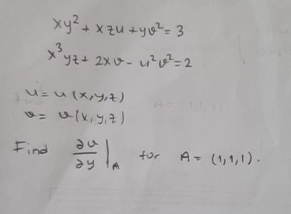 xy² + xzu + yv² = 3
x³yz + 2xv - u²v² = 2
u = u(x,y,z)
v = v(x,y,z)
Find ∂u/∂y |A for A = (1,1,1).